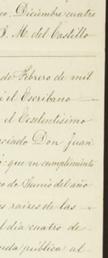 Diciembre cuatro
B. M. del Castillo
de Febrero de mil
el Escribano
el Excelentísimo
Don Juan
que en cumplimiento
de Junio del año
raíces de las
el día cuatro de
pública al